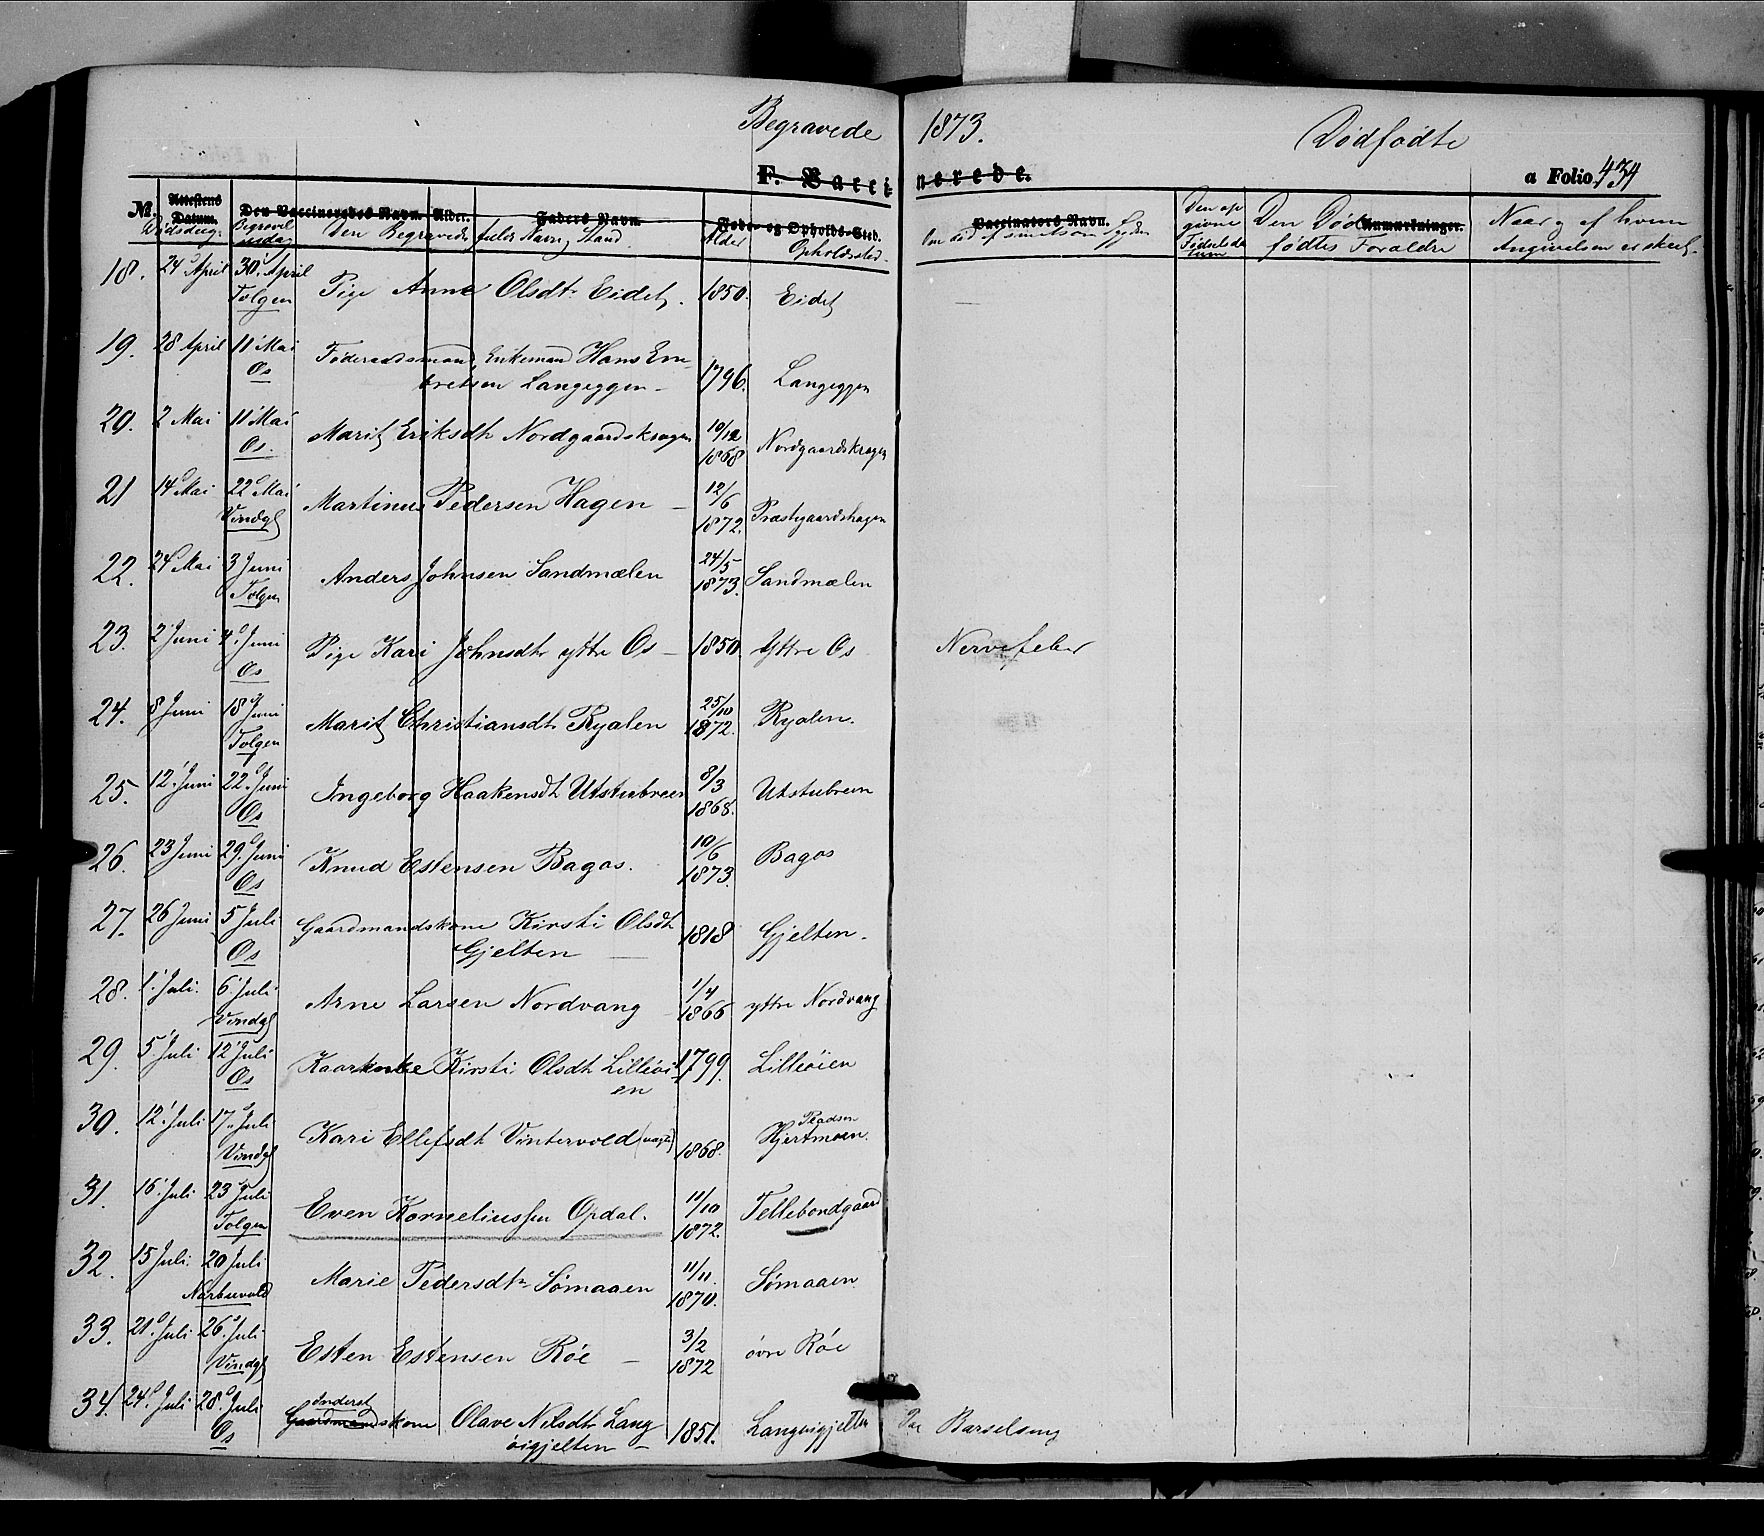 Begravede 1873. Dødfødte
F. Vaccinerede. a Folio 434
No. Attestens Datum. Den Vaccineredes Navn. Alder. Faders Navn. Føde- og Opholds-Sted. Vaccinators Navn. Anmærkninger.
Dødsdag Begravelsesdag Den Begravedes fulde Navn og Stand Alder Opholdssted Den opgivne Fødselsdatum Den Dødfødtes Forældre Naar og af hvem Angivelsen er skeet
18. 24 April 30. April Tolgen Pige Anne Olsdtr Eidet. 1850. Eidet
19. 28 April 11 Mai Os Føderaadsmand, Enkemand Hans Embretsen Langeggen 1796. Langeggen
20. 2 Mai 11 Mai Os. Marit Eriksdt Nordgaardskrogen 10/12 1868 Nordgaardskrogen
21 14 Mai 22 Mai Vindgl Martinus Pedersen Hagen 12/6 1872. Præstegaardshagen
22. 24 Mai 3 Juni Tolgen Anders Johnsen Sandmælen 24/5 1873. Sandmælen
23. 2 Juni 4. Juni Os Pige Kari Johnsdtr yttre Os 1850 Yttre Os Nervefeber
24. 8 Juni 18 Juni Tolgen Marit Christiansdt Ryalen 25/10 1872. Ryalen.
25. 12. Juni 22. Juni Os Ingeborg Haakensdt Utstubreen 8/3 1868. Utstubreen
26. 23 Juni 29. Juni Os Knud Estensen Bagaas. 10/6 1873. Bagaas
27. 26 Juni 5 Juli Os Gaardmandskone Kirsti Olsdt Gjelten 1818 Gjelten.
28. 1. Juli. 6. Juli Vindgl Arne Larsen Nordvang 1/4 1866 yttre Nordvang
29. 5. Juli 12 Juli Os Kaarenke Kirsti Olsdt Lilleøien 1799. Lilleøien
30. 12. Juli 17. Juli Vindgl Kari Ellefsdt Vintervold 1868. Pladsen Hjertmoen.
31. 16. Juli 23 Juli Tolgen Even Korneliussen Opdal. 11/10 1872. Tellebondgaard
32. 15 Juli. 20 Juli Narbuvold Marie Pedersdtr Sømaaen 11/11. 1870. Sømaaen
33. 21. Juli 26. Juli Vindgl Esten Estensen Røe 3/2 1872 øvre Røe
34. 24. Juli 28. Juli Os Inderst Gaardmandskone Olave Nilsdtr Langøigjelten 1851. Langøigjelten Barselseng